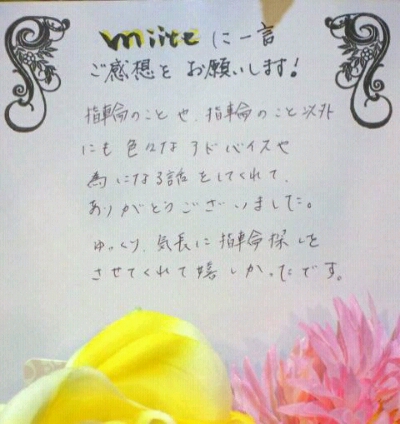 miite に一言
ご感想を お願いします!
指輪のことや、指輪のこと以外
にも 色々なアドバイスや
為になる話をしてくれて、
ありがとうございました。
ゆっくり、気長に指輪探しを
させてくれて嬉しかったです。